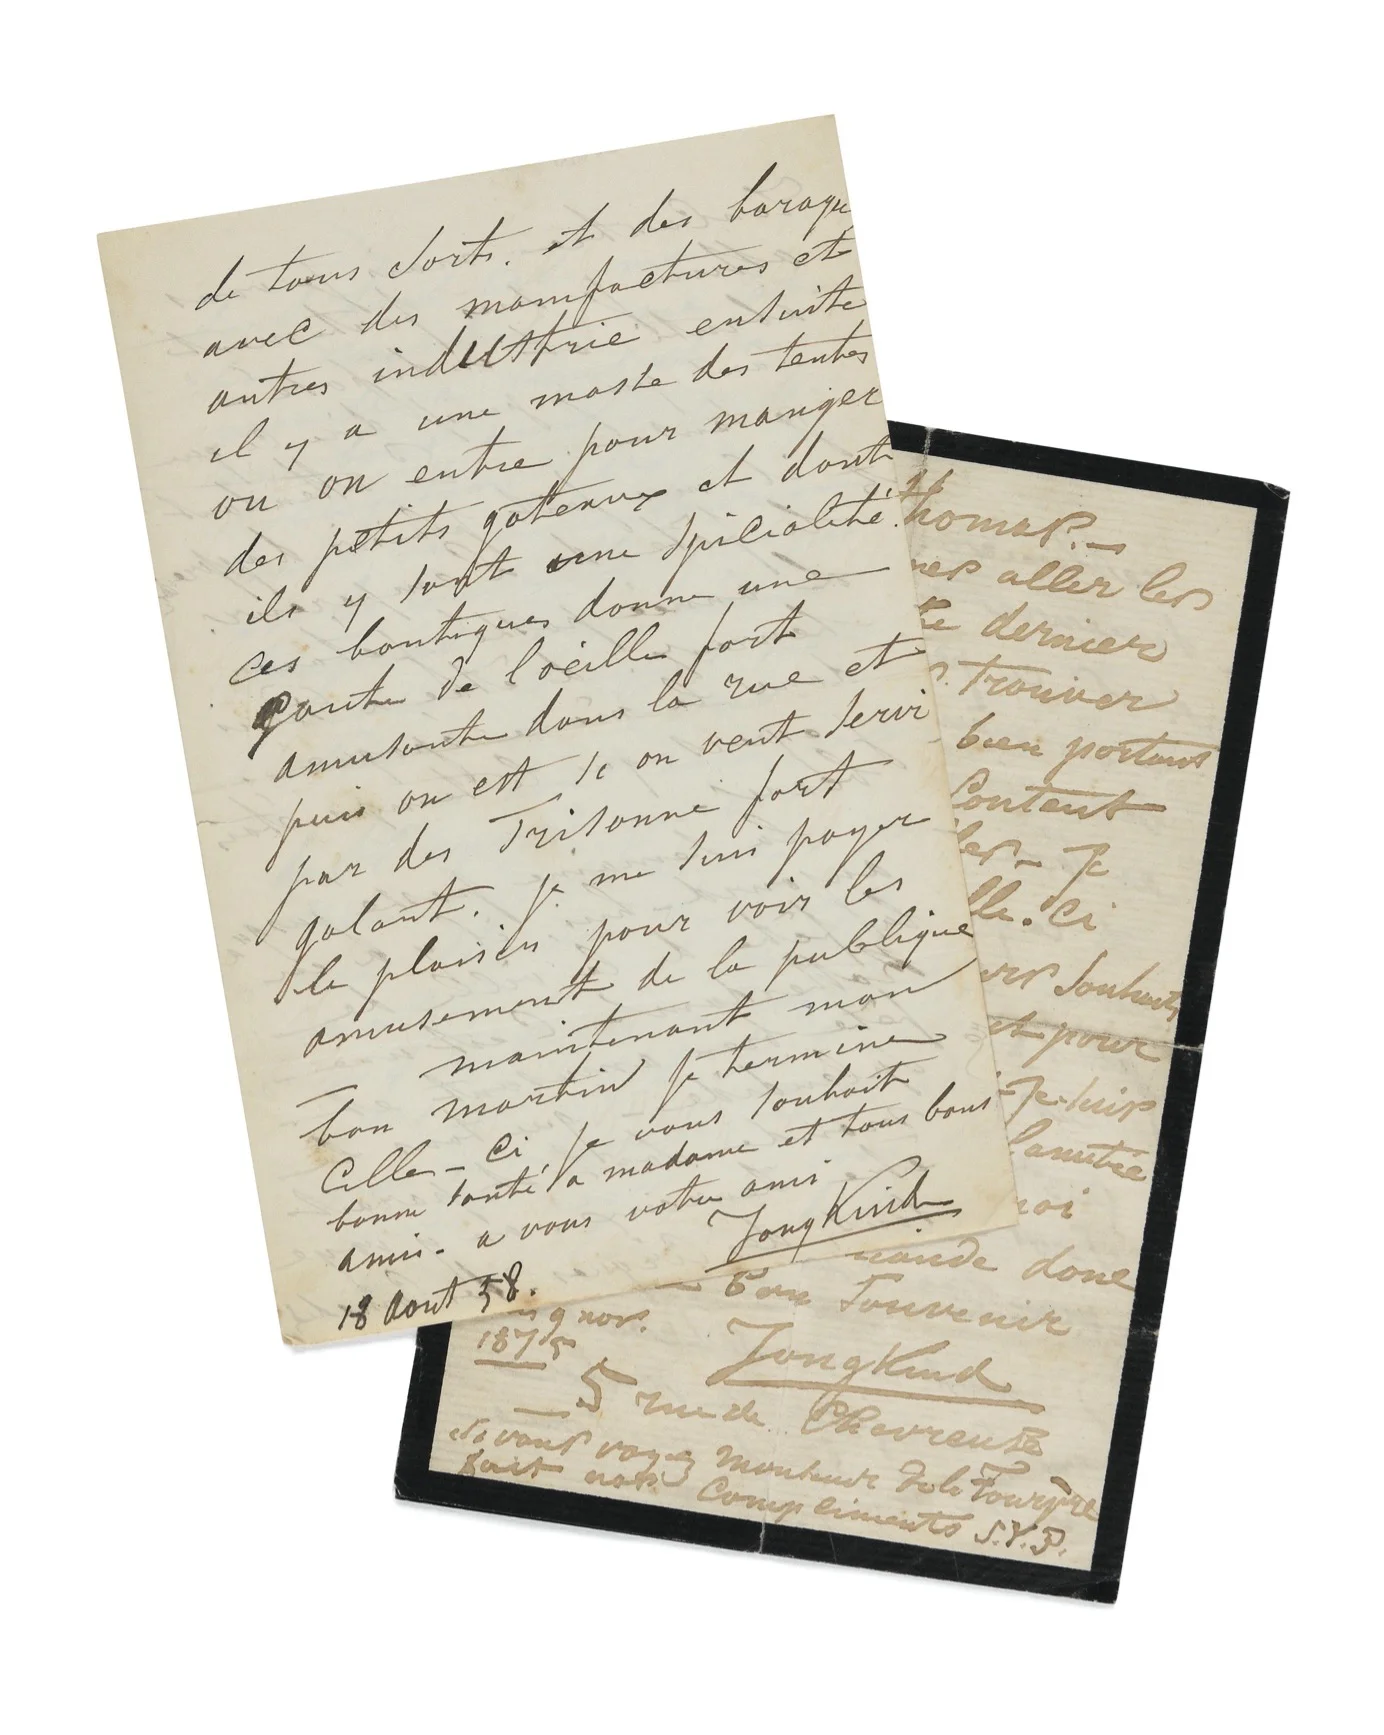 de tous sorts. et des baraqu
avec des manufactures et
autres industrie ensuite
il y a une masse des tentes
ou on entre pour manger
des petits gateaux et dont
ils y sont une spicialité.
ces boutiques donne une
de l'oeille fort
amusante dans la rue et
puis on est si on veut servi
par des Frisonne fort
galant. je me suis payer
le plaisir pour voir les
amusement de la publique
— maintenant mon
bon martin je termine
Celle-Ci, je vous souhait
bonne santé, a madame et tous bons
amis. a vous votre ami
JongKind
18 Aout 58.
Thomas. —
aller les
dernier
Trouver
bien portant
Content
Je
lle-Ci
souhait
et pour
Je suis
l'amitié
moi
donc
bon Souvenir
9 nov.
1875
JongKind
5 rue de Chevreuse
si vous voyez monsieur De la Fourprre
fait mes Compliments S.V.P.